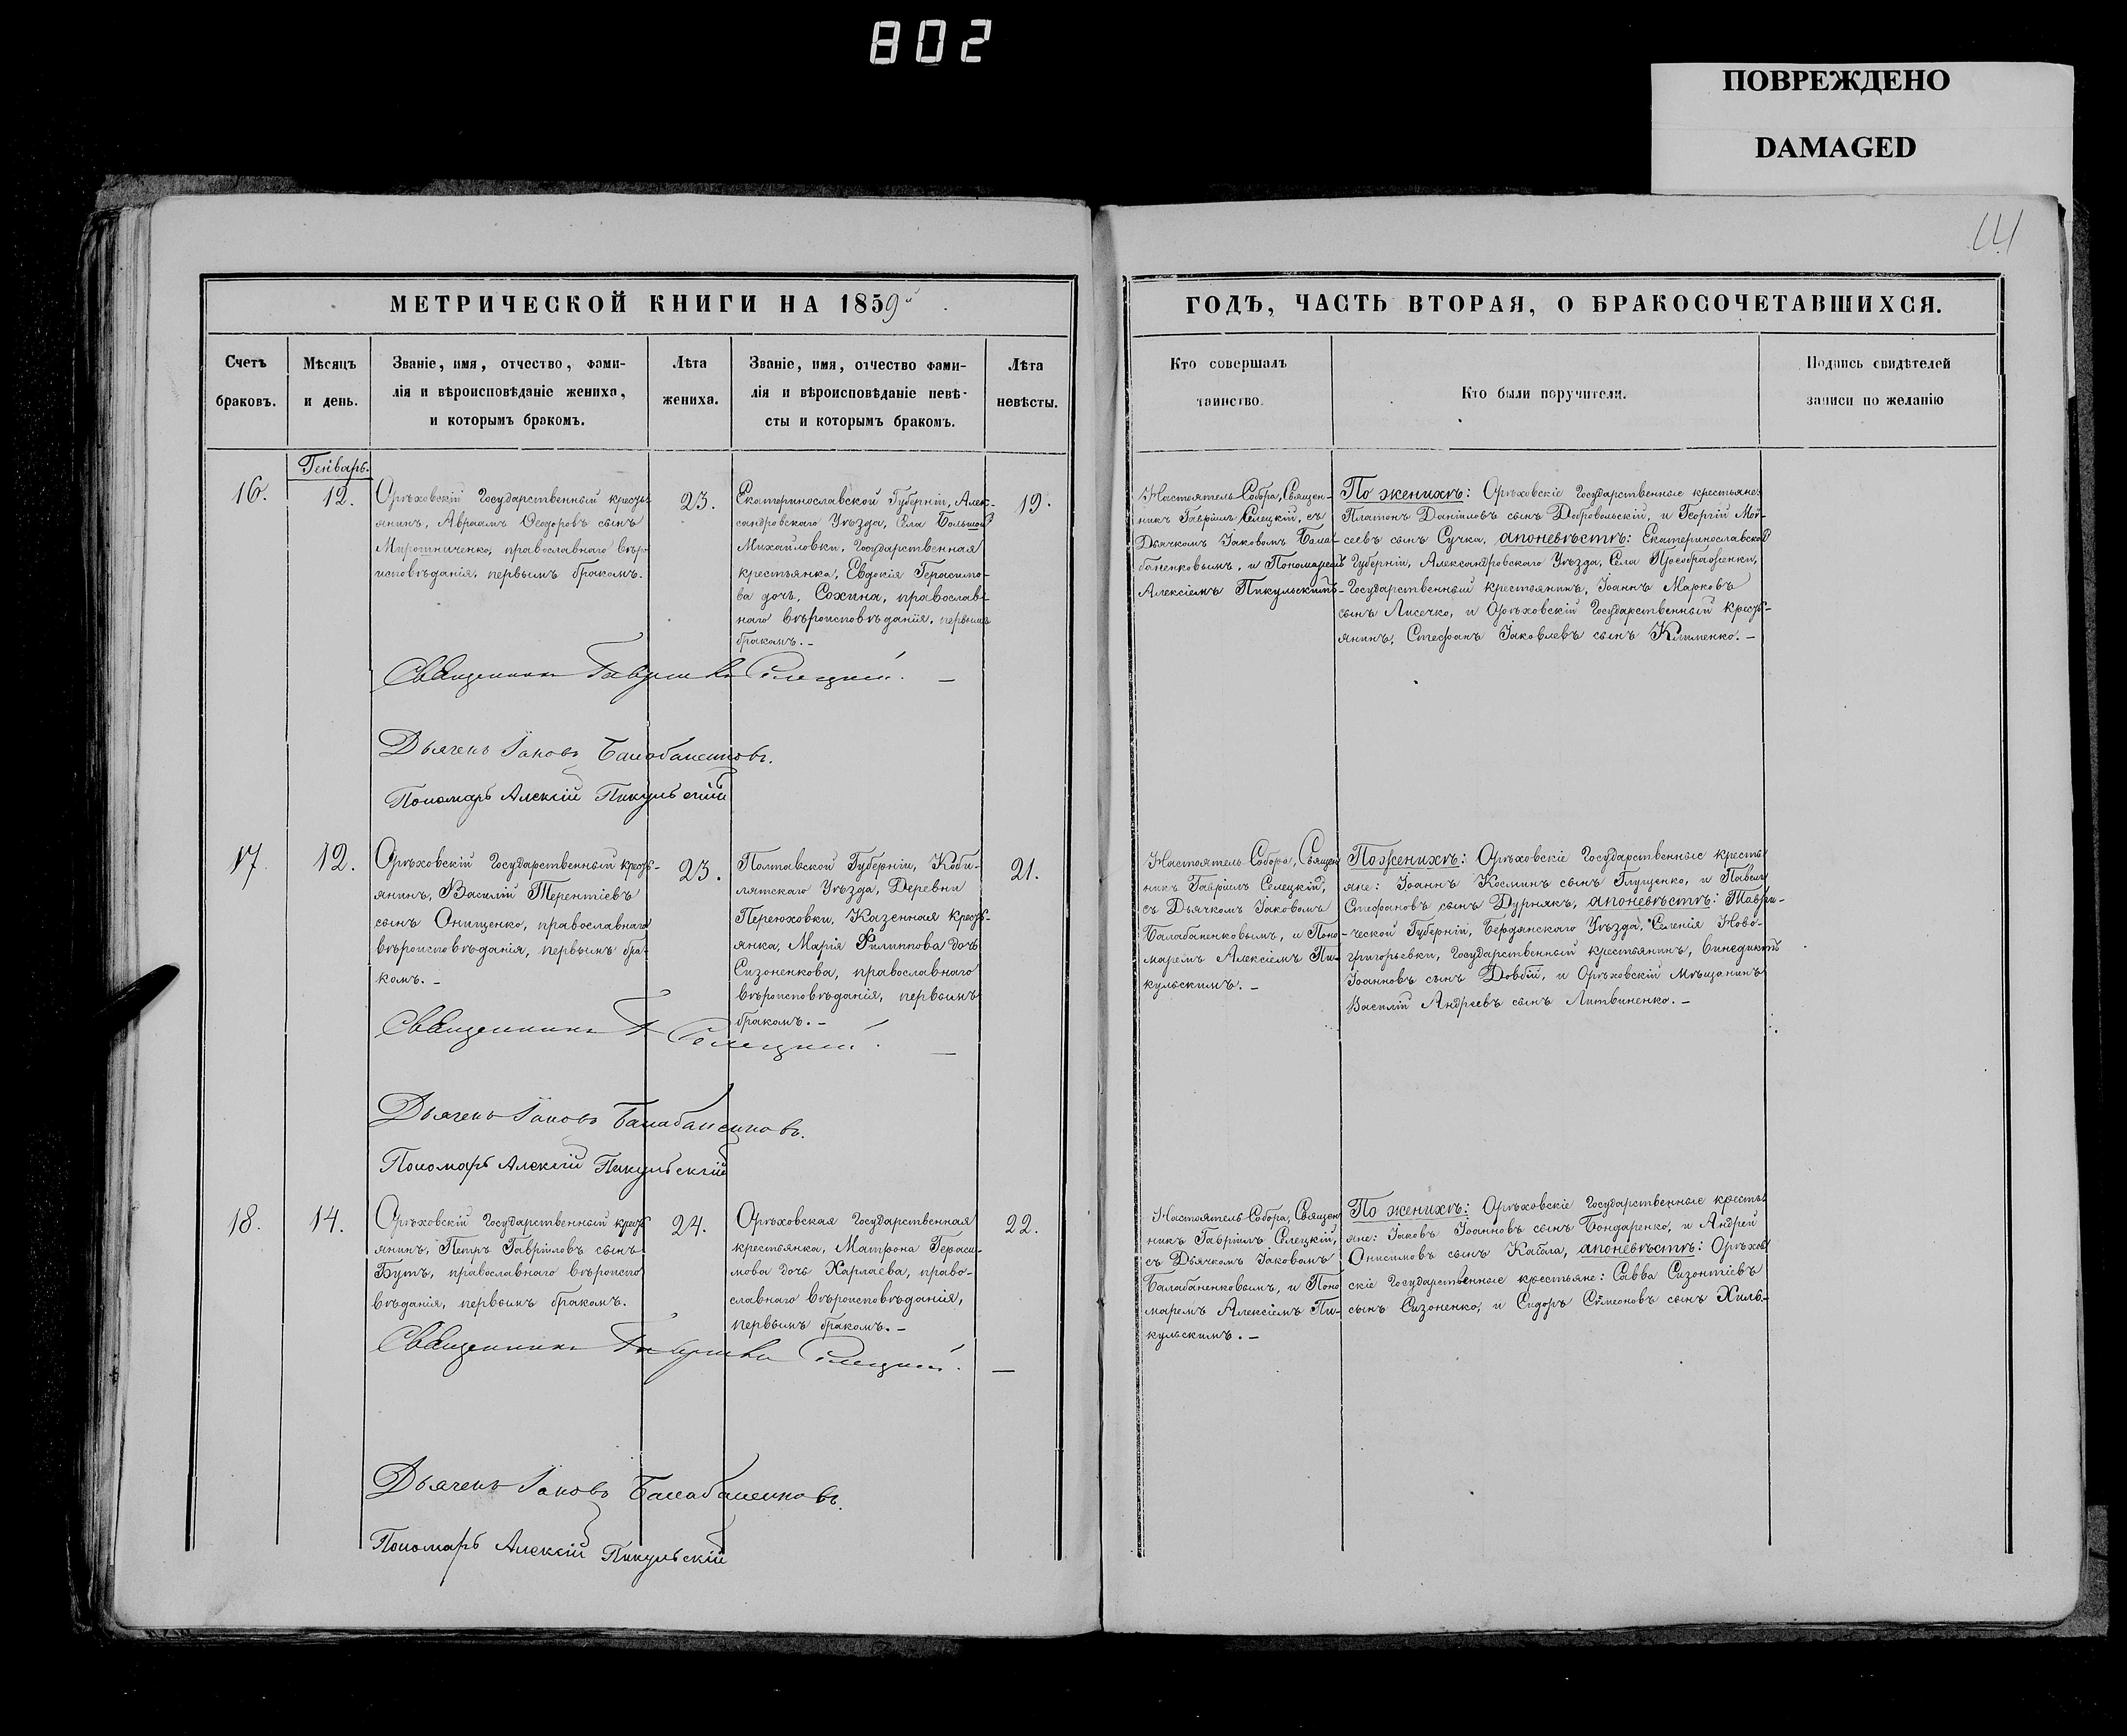 802
ПОВРЕЖДЕНО
DAMAGED
МЕТРИЧЕСКОЙ КНИГИ НА 1859й
ГОДЪ, ЧАСТЬ ВТОРАЯ, О БРАКОСОЧЕТАВШИХСЯ.
Счетъ
браковъ.
Мѣсяцъ
и день.
Званіе, имя, отчество, фами-
лія и вѣроисповѣданіе жениха,
и которымъ бракомъ.
Лѣта
жениха.
Званіе, имя, отчество фами-
лія и вѣроисповѣданіе невѣ-
сты и которымъ бракомъ.
Лѣта
невѣсты.
Кто совершалъ
таинство.
Кто были поручители.
Подпись свидѣтелей
записи по желанію
Генварь.
16.
12.
Орѣховскій Государственный кресть-
янинъ, Авраамъ Ѳеодоровъ сынъ
Мирошниченко, православнаго вѣро-
исповѣданія, первымъ бракомъ.
23.
Екатеринославской Губерніи, Алек-
сандровскаго Уѣзда, Села Большой
Михайловки, Государственная
крестьянка, Евдокія Герасимо-
ва дочь, Сохина, православ-
наго вѣроисповѣданія, первымъ
бракомъ.–
19.
Настоятель Собора, Священ-
никъ Гавріилъ Селецкій, съ
Дьячкомъ Іаковомъ Бала-
баненковымъ, и Пономаремъ
Алексіемъ Пикульскимъ
По женихѣ: Орѣховскіе Государственные крестьяне:
Платонъ Даніиловъ сынъ Добровольскій, и Георгій Мой-
сеевъ сынъ Сучка, апоневѣстѣ: Екатеринославской
Губерніи, Александровскаго Уѣзда, Села Преображенки,
Государственный крестьянинъ, Іоаннъ Марковъ
сынъ Лисечко, и Орѣховскій Государственный кресть-
янинъ, Стефанъ Іаковлевъ сынъ Клименко.–
Священникъ Гавріилъ Селецкій.–
Дьячекъ Іаковъ Балабаненковъ.
Пономарь Алексій Пикульскій
17.
12.
Орѣховскій Государственный кресть-
янинъ, Василій Терентіевъ
сынъ Онищенко, православнаго
вѣроисповѣданія, первымъ бра-
комъ.–
23.
Полтавской Губерніи, Коби-
лятскаго Уѣзда, Деревни
Переюховки, Казенная кресть-
янка, Марія Филиппова дочь
Сизоненкова, православнаго
вѣроисповѣданія, первымъ
бракомъ.–
21.
Настоятель Собора, Священ
никъ Гавріилъ Селецкій,
съ Дьячкомъ Іаковомъ
Балабаненковымъ, и Поно-
маремъ Алексіемъ Пи-
кульскимъ.–
По женихѣ: Орѣховскіе Государственные кресть
яне: Іоаннъ Косминъ сынъ Глущенко, и Павелъ
Стефановъ сынъ Дурнякъ, апоневѣстѣ: Таври-
ческой Губерніи, Бердянскаго Уѣзда, Селенія Ново-
григорьевки, Государственный крестьянинъ, Винедиктъ
Іоанновъ сынъ Довбій, и Орѣховскій Мѣщанинъ
Василій Андреевъ сынъ Литвиненко.–
Священникъ Г Селецкій.–
Дьячекъ Іаковъ Балабаненковъ.
Пономарь Алексій Пикульскій
18.
14.
Орѣховскій Государственный кресть
янинъ, Петръ Гавріиловъ сынъ
Бутъ, православнаго вѣроиспо
вѣданія, первымъ бракомъ.
24.
Орѣховская Государственная
крестьянка, Матрона Гераси-
мова дочь Харлаева, право-
славнаго вѣроисповѣданія,
первымъ бракомъ.–
22.
Настоятель Собора, Священ
никъ Гавріилъ Селецкій,
съ Дьячкомъ Іаковомъ
Балабаненковымъ, и Поно
маремъ Алексіемъ Пи-
кульскимъ.–
По женихѣ: Орѣховскіе Государственные кресть
яне: Іаковъ Іоанновъ сынъ Бондаренко, и Андрей
Онисимовъ сынъ апоневѣстѣ: Орѣхов
скіе Государственные крестьяне: Савва Сизонтіевъ
сынъ Сизоненко, и Сидоръ Симеоновъ сынъ Хиль.–
Священникъ Гавріилъ Селецкій.–
Дьячекъ Іаковъ Балабаненковъ.
Пономарь Алексій Пикульскій